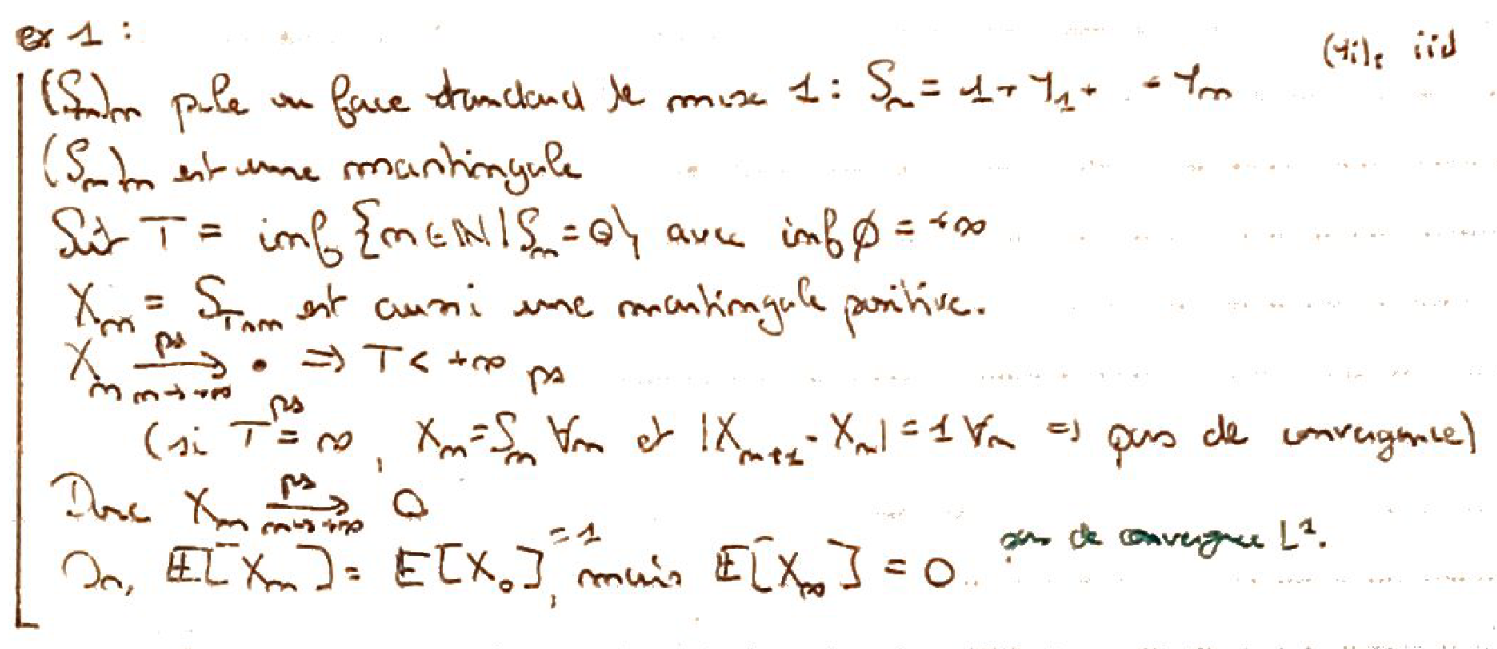 ex 1 :
(Yi)i iid
(Sn)n pile ou face standard de mise 1 : Sn = 1 + Y1 + - Yn
(Sn)n est une martingale
Soit T = inf {n ∈ ℕ | Sn = 0} avec inf ∅ = +∞
Xn = S_{T∧n} est aussi une martingale positive.
Xn →^{ps}_{n→+∞} • ⇒ T < +∞ ps
(si T =^{ps} ∞, Xn = Sn ∀n et |Xn+1 - Xn| = 1 ∀n ⇒ pas de convergence)
Donc Xn →^{ps}_{n→+∞} 0
Or, 𝔼[Xn] = 𝔼[X0] = 1, mais 𝔼[X∞] = 0 pas de convergence L¹.